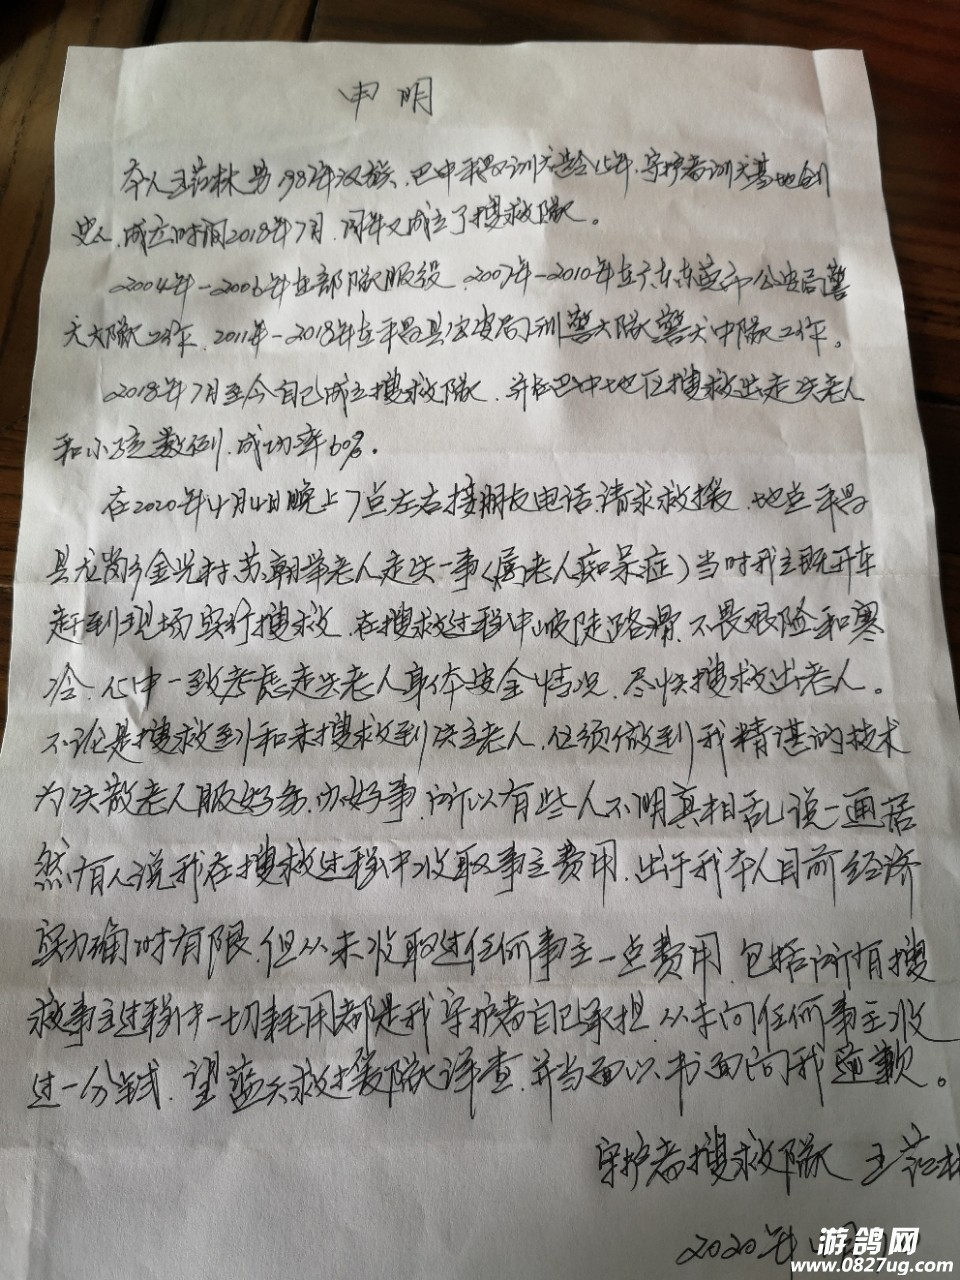 申明
本人王范林 男 1982年汉族、巴中平昌训犬龄15年,守护者训犬基地创
史人,成立时间2018年7月,同年又成立了搜救队。
2004年-2006年在部队服役,2007年-2010年在广东东莞市公安局警
犬大队工作,2011年-2018年在平昌县公安局刑警大队警犬中队工作。
2018年7月至今自己成立搜救队,并在巴中地区搜救出走失老人
和小孩数例,成功率60%。
在2020年4月4日晚上7点左右接朋友电话,请求救援,地点平昌
县龙岗乡金光村,苏朝举老人走失一事(属老人痴呆症)当时我立既开车
赶到现场实行搜救,在搜救过程中坡陡路滑,不畏艰险和寒
冷,心中一致考虑走失老人身体安全情况,尽快搜救出老人。
不论是搜救到和未搜救到失主老人,必须做到我精谌的技术
为失散老人服好务,办好事,所以有些人不明真相乱说一通居
然有人说我在搜救过程中收取事主费用,出于我本人目前经济
实力确时有限,但从未收取过任何事主一点费用,包括所有搜
救事主过程中一切耗用都是我守护者自己承担,从未问任何事主收
过一分钱,望蓝天救援队详查,并当面以书面向我道歉。
守护者搜救队 王范林
2020年4月
游鸽网
www.0827ug.com